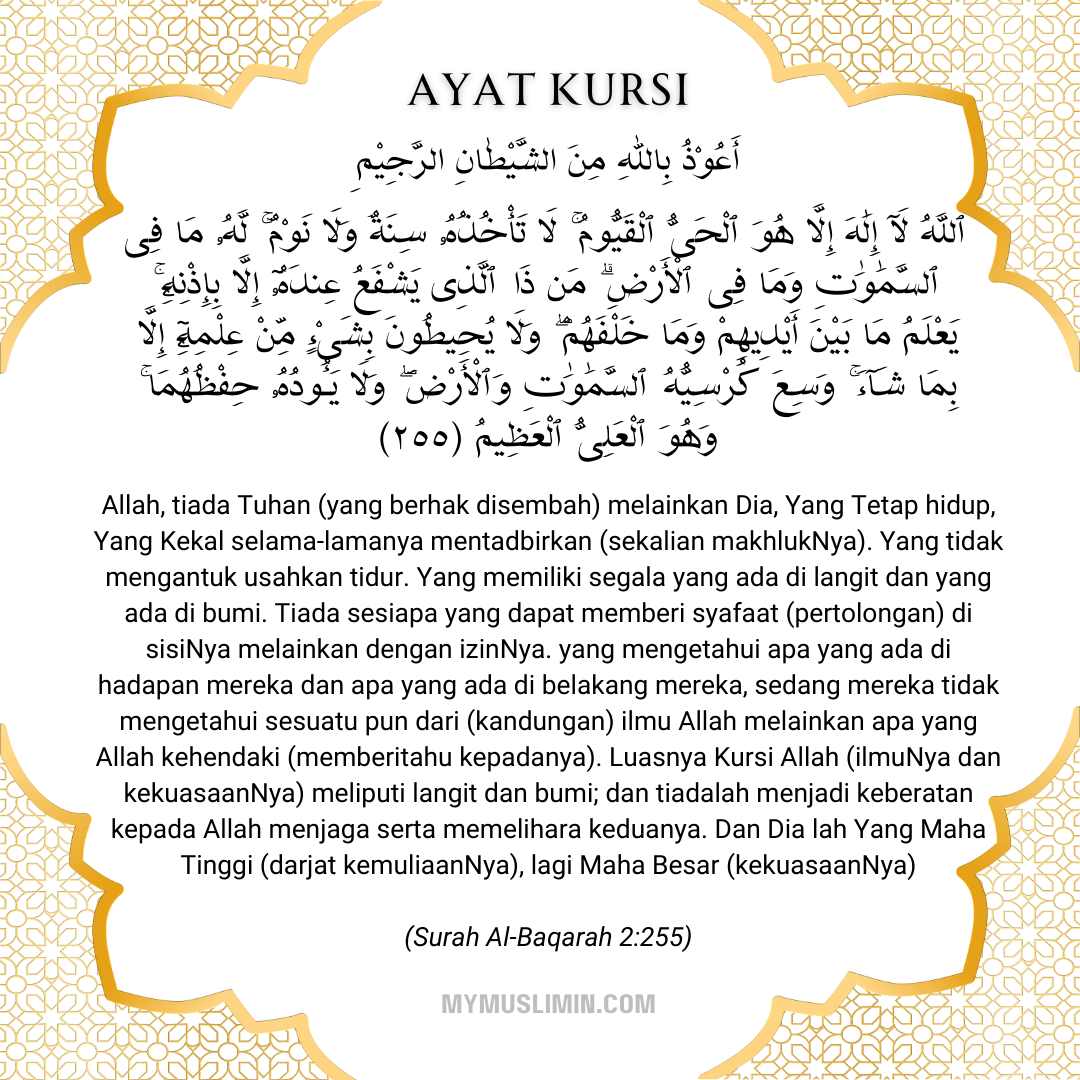 AYAT KURSI
أَعُوْذُ بِاللهِ مِنَ الشَّيْطٰانِ الرَّجِيْمِ
ٱللَّهُ لَآ إِلَٰهَ إِلَّا هُوَ ٱلْحَىُّ ٱلْقَيُّومُ ۚ لَا تَأْخُذُهُۥ سِنَةٌ وَلَا نَوْمٌ ۚ لَّهُۥ مَا فِى
ٱلسَّمَٰوَٰتِ وَمَا فِى ٱلْأَرْضِ ۗ مَن ذَا ٱلَّذِى يَشْفَعُ عِندَهُۥٓ إِلَّا بِإِذْنِهِۦ ۚ
يَعْلَمُ مَا بَيْنَ أَيْدِيهِمْ وَمَا خَلْفَهُمْ ۖ وَلَا يُحِيطُونَ بِشَىْءٍ مِّنْ عِلْمِهِۦٓ إِلَّا
بِمَا شَآءَ ۚ وَسِعَ كُرْسِيُّهُ ٱلسَّمَٰوَٰتِ وَٱلْأَرْضَ ۖ وَلَا يَـُٔودُهُۥ حِفْظُهُمَا ۚ
وَهُوَ ٱلْعَلِىُّ ٱلْعَظِيمُ (٢٥٥)
Allah, tiada Tuhan (yang berhak disembah) melainkan Dia, Yang Tetap hidup,
Yang Kekal selama-lamanya mentadbirkan (sekalian makhlukNya). Yang tidak
mengantuk usahkan tidur. Yang memiliki segala yang ada di langit dan yang
ada di bumi. Tiada sesiapa yang dapat memberi syafaat (pertolongan) di
sisiNya melainkan dengan izinNya. yang mengetahui apa yang ada di
hadapan mereka dan apa yang ada di belakang mereka, sedang mereka tidak
mengetahui sesuatu pun dari (kandungan) ilmu Allah melainkan apa yang
Allah kehendaki (memberitahu kepadanya). Luasnya Kursi Allah (ilmuNya dan
kekuasaanNya) meliputi langit dan bumi; dan tiadalah menjadi keberatan
kepada Allah menjaga serta memelihara keduanya. Dan Dia lah Yang Maha
Tinggi (darjat kemuliaanNya), lagi Maha Besar (kekuasaanNya)
(Surah Al-Baqarah 2:255)
MYMUSLIMIN.COM